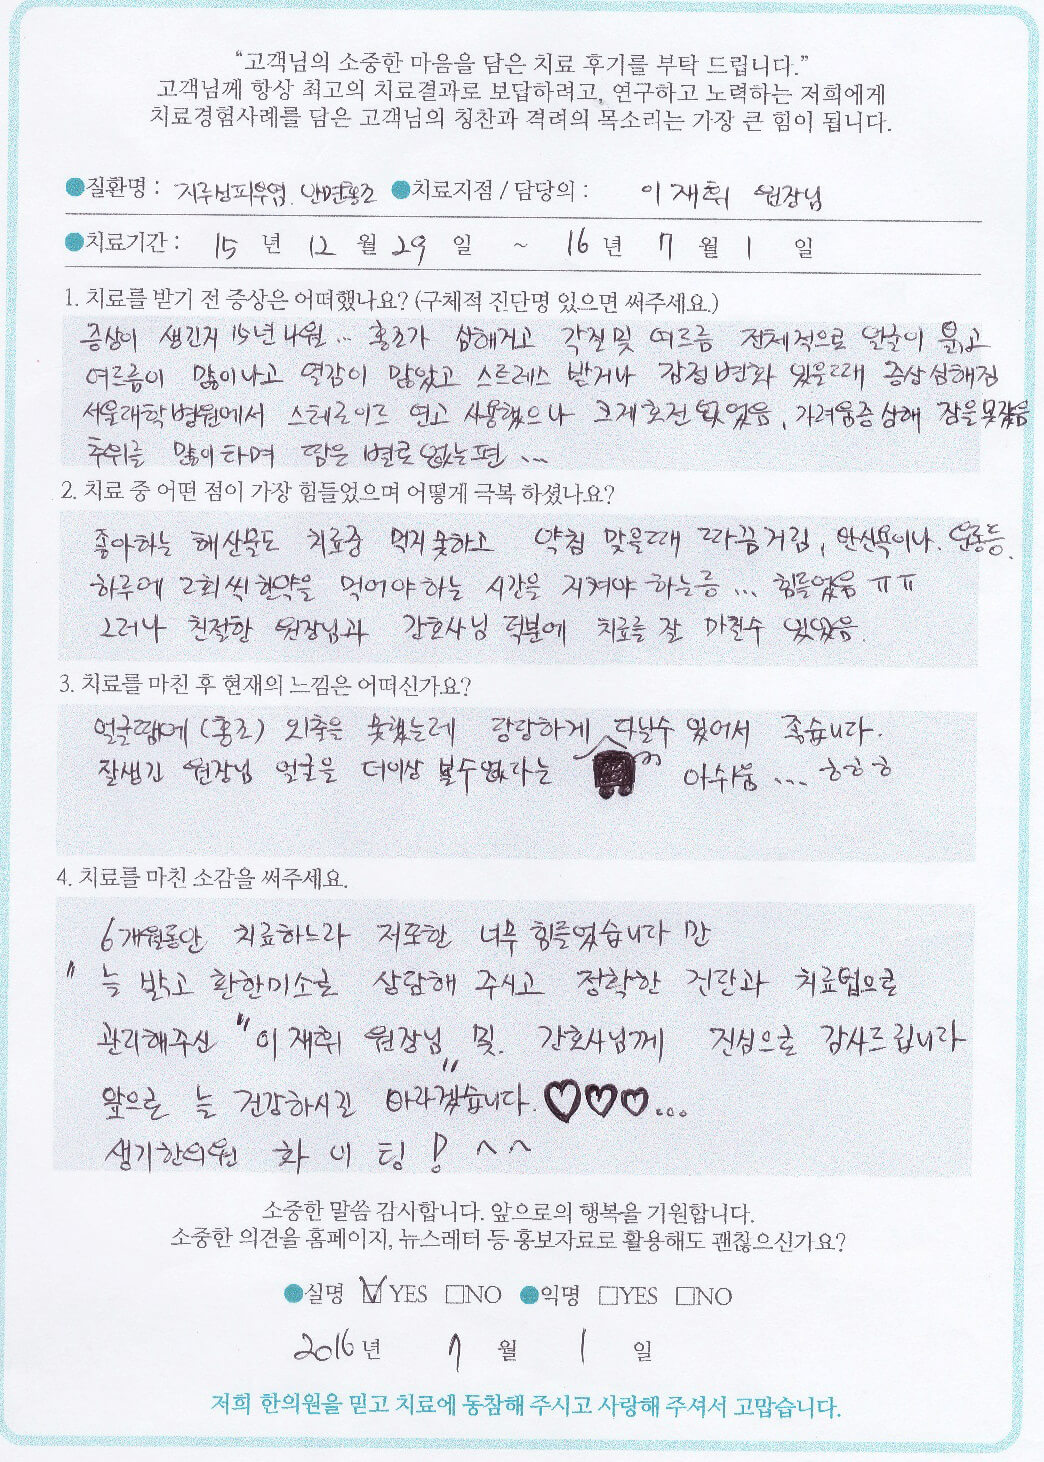 “고객님의 소중한 마음을 담은 치료 후기를 부탁 드립니다.”
고객님께 항상 최고의 치료결과로 보답하려고, 연구하고 노력하는 저희에게
치료경험사례를 담은 고객님의 칭찬과 격려의 목소리는 가장 큰 힘이 됩니다.
●질환명 : 지루성피부염. 안면홍조 ●치료지점 / 담당의 : 이재휘 원장님
●치료기간 : 15 년 12 월 29 일 ~ 16 년 7 월 1 일
1. 치료를 받기 전 증상은 어떠했나요? (구체적 진단명 있으면 써주세요.)
증상이 생긴지 15년 4월... 홍조가 심해지고 각질 및 여드름 전체적으로 얼굴이 붉고
여드름이 많이나고 열감이 많았고 스트레스 받거나 감정변화 있을때 증상심해짐
서울대학병원에서 스테로이드 연고 사용했으나 크게호전 없었음, 가려움증 심해 잠을못잤음
추위를 많이타며 땀은 별로 없는편 ...
2. 치료 중 어떤 점이 가장 힘들었으며 어떻게 극복 하셨나요?
좋아하는 해산물도 치료중 먹지못하고 약침 맞을때 따끔거림, 반신욕이나. 운동등.
하루에 2회씩 한약을 먹어야하는 시간을 지켜야 하는등 ... 힘들었음 ㅠㅠ
그러나 친절한 원장님과 간호사님 덕분에 치료를 잘 마칠수 있었음.
3. 치료를 마친 후 현재의 느낌은 어떠신가요?
얼굴땜에 (홍조) 외출을 못했는데 당당하게 다닐수 있어서 좋습니다.
잘생긴 원장님 얼굴을 더이상 볼수없다는 아쉬움 ... ㅎㅎㅎ
4. 치료를 마친 소감을 써주세요.
6개월동안 치료하느라 저또한 너무 힘들었습니다 만
" 늘 밝고 환한미소로 상담해 주시고 정확한 진단과 치료법으로
관리해주신 " 이재휘 원장님 및. 간호사님께 진심으로 감사드립니다
앞으로 늘 건강하시길 바라겠습니다. ♡♡♡...
생기한의원 화 이 팅 ! ^^
소중한 말씀 감사합니다. 앞으로의 행복을 기원합니다.
소중한 의견을 홈페이지, 뉴스레터 등 홍보자료로 활용해도 괜찮으신가요?
●실명 ☑YES □NO ●익명 □YES □NO
2016년 7 월 1 일
저희 한의원을 믿고 치료에 동참해 주시고 사랑해 주셔서 고맙습니다.